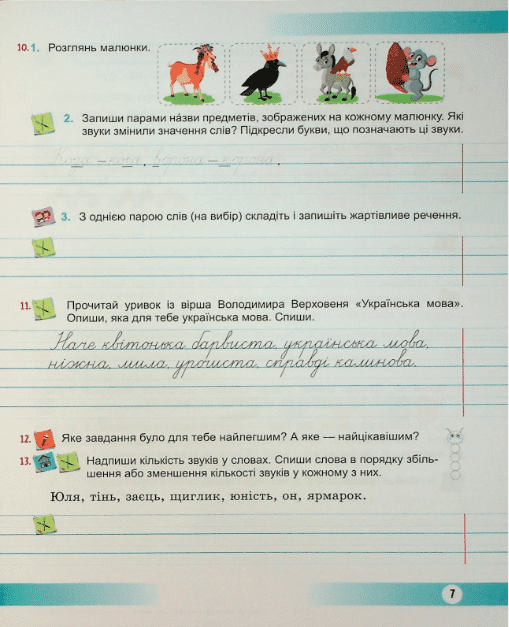 10. 1. Розглянь малюнки.
2. Запиши парами назви предметів, зображених на кожному малюнку. Які
звуки змінили значення слів? Підкресли букви, що позначають ці звуки.
Коза – коса, ворона – корона.
3. З однією парою слів (на вибір) складіть і запишіть жартівливе речення.
11. Прочитай уривок із вірша Володимира Верховеня «Українська мова».
Опиши, яка для тебе українська мова. Спиши.
Наче квітонька барвиста, українська мова,
ніжна, мила, урочиста, справді калинова.
12. Яке завдання було для тебе найлегшим? А яке — найцікавішим?
13. Надпиши кількість звуків у словах. Спиши слова в порядку збіль-
шення або зменшення кількості звуків у кожному з них.
Юля, тінь, заєць, щиглик, юність, он, ярмарок.
7